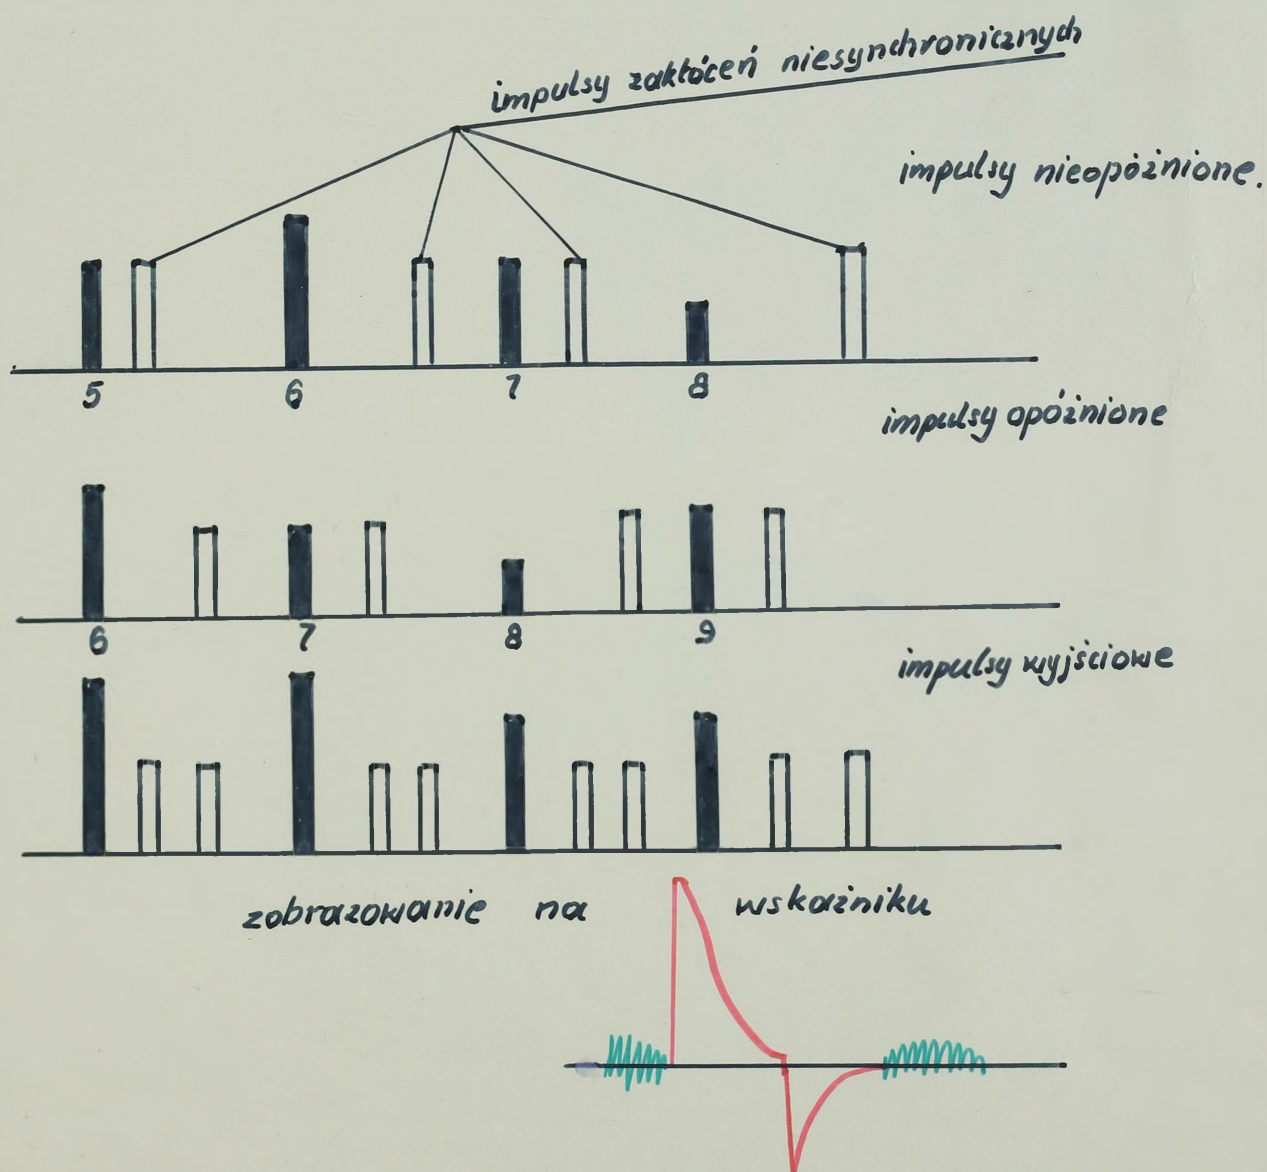 impulsy zakłóceń niesynchronicznych
impulsy nieopóżnione.
5 6 7 8
impulsy opóżnione
6 7 8 9
impulsy wyjściowe
zobrazowanie na wskażniku